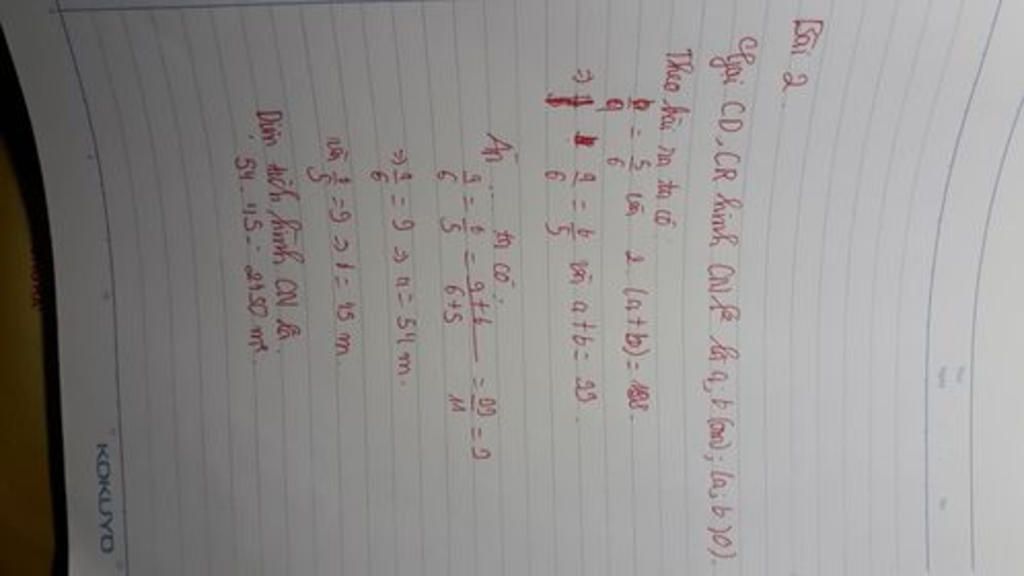 Bài 2
Gọi CD, CR hình CN lần là a, b (m); (a, b > 0).
Theo bài ra ta có
b/a = 5/6 và 2. (a+b) = 198
=> a/6 = b/5 và a+b = 99.
AD ta có:
a/6 = b/5 = a+b/6+5 = 99/11 = 9
=> a/6 = 9 => a = 54 m.
và b/5 = 9 => b = 45 m
Diện tích hình CN là.
54. 45 = 2430 m²
KOKUYO